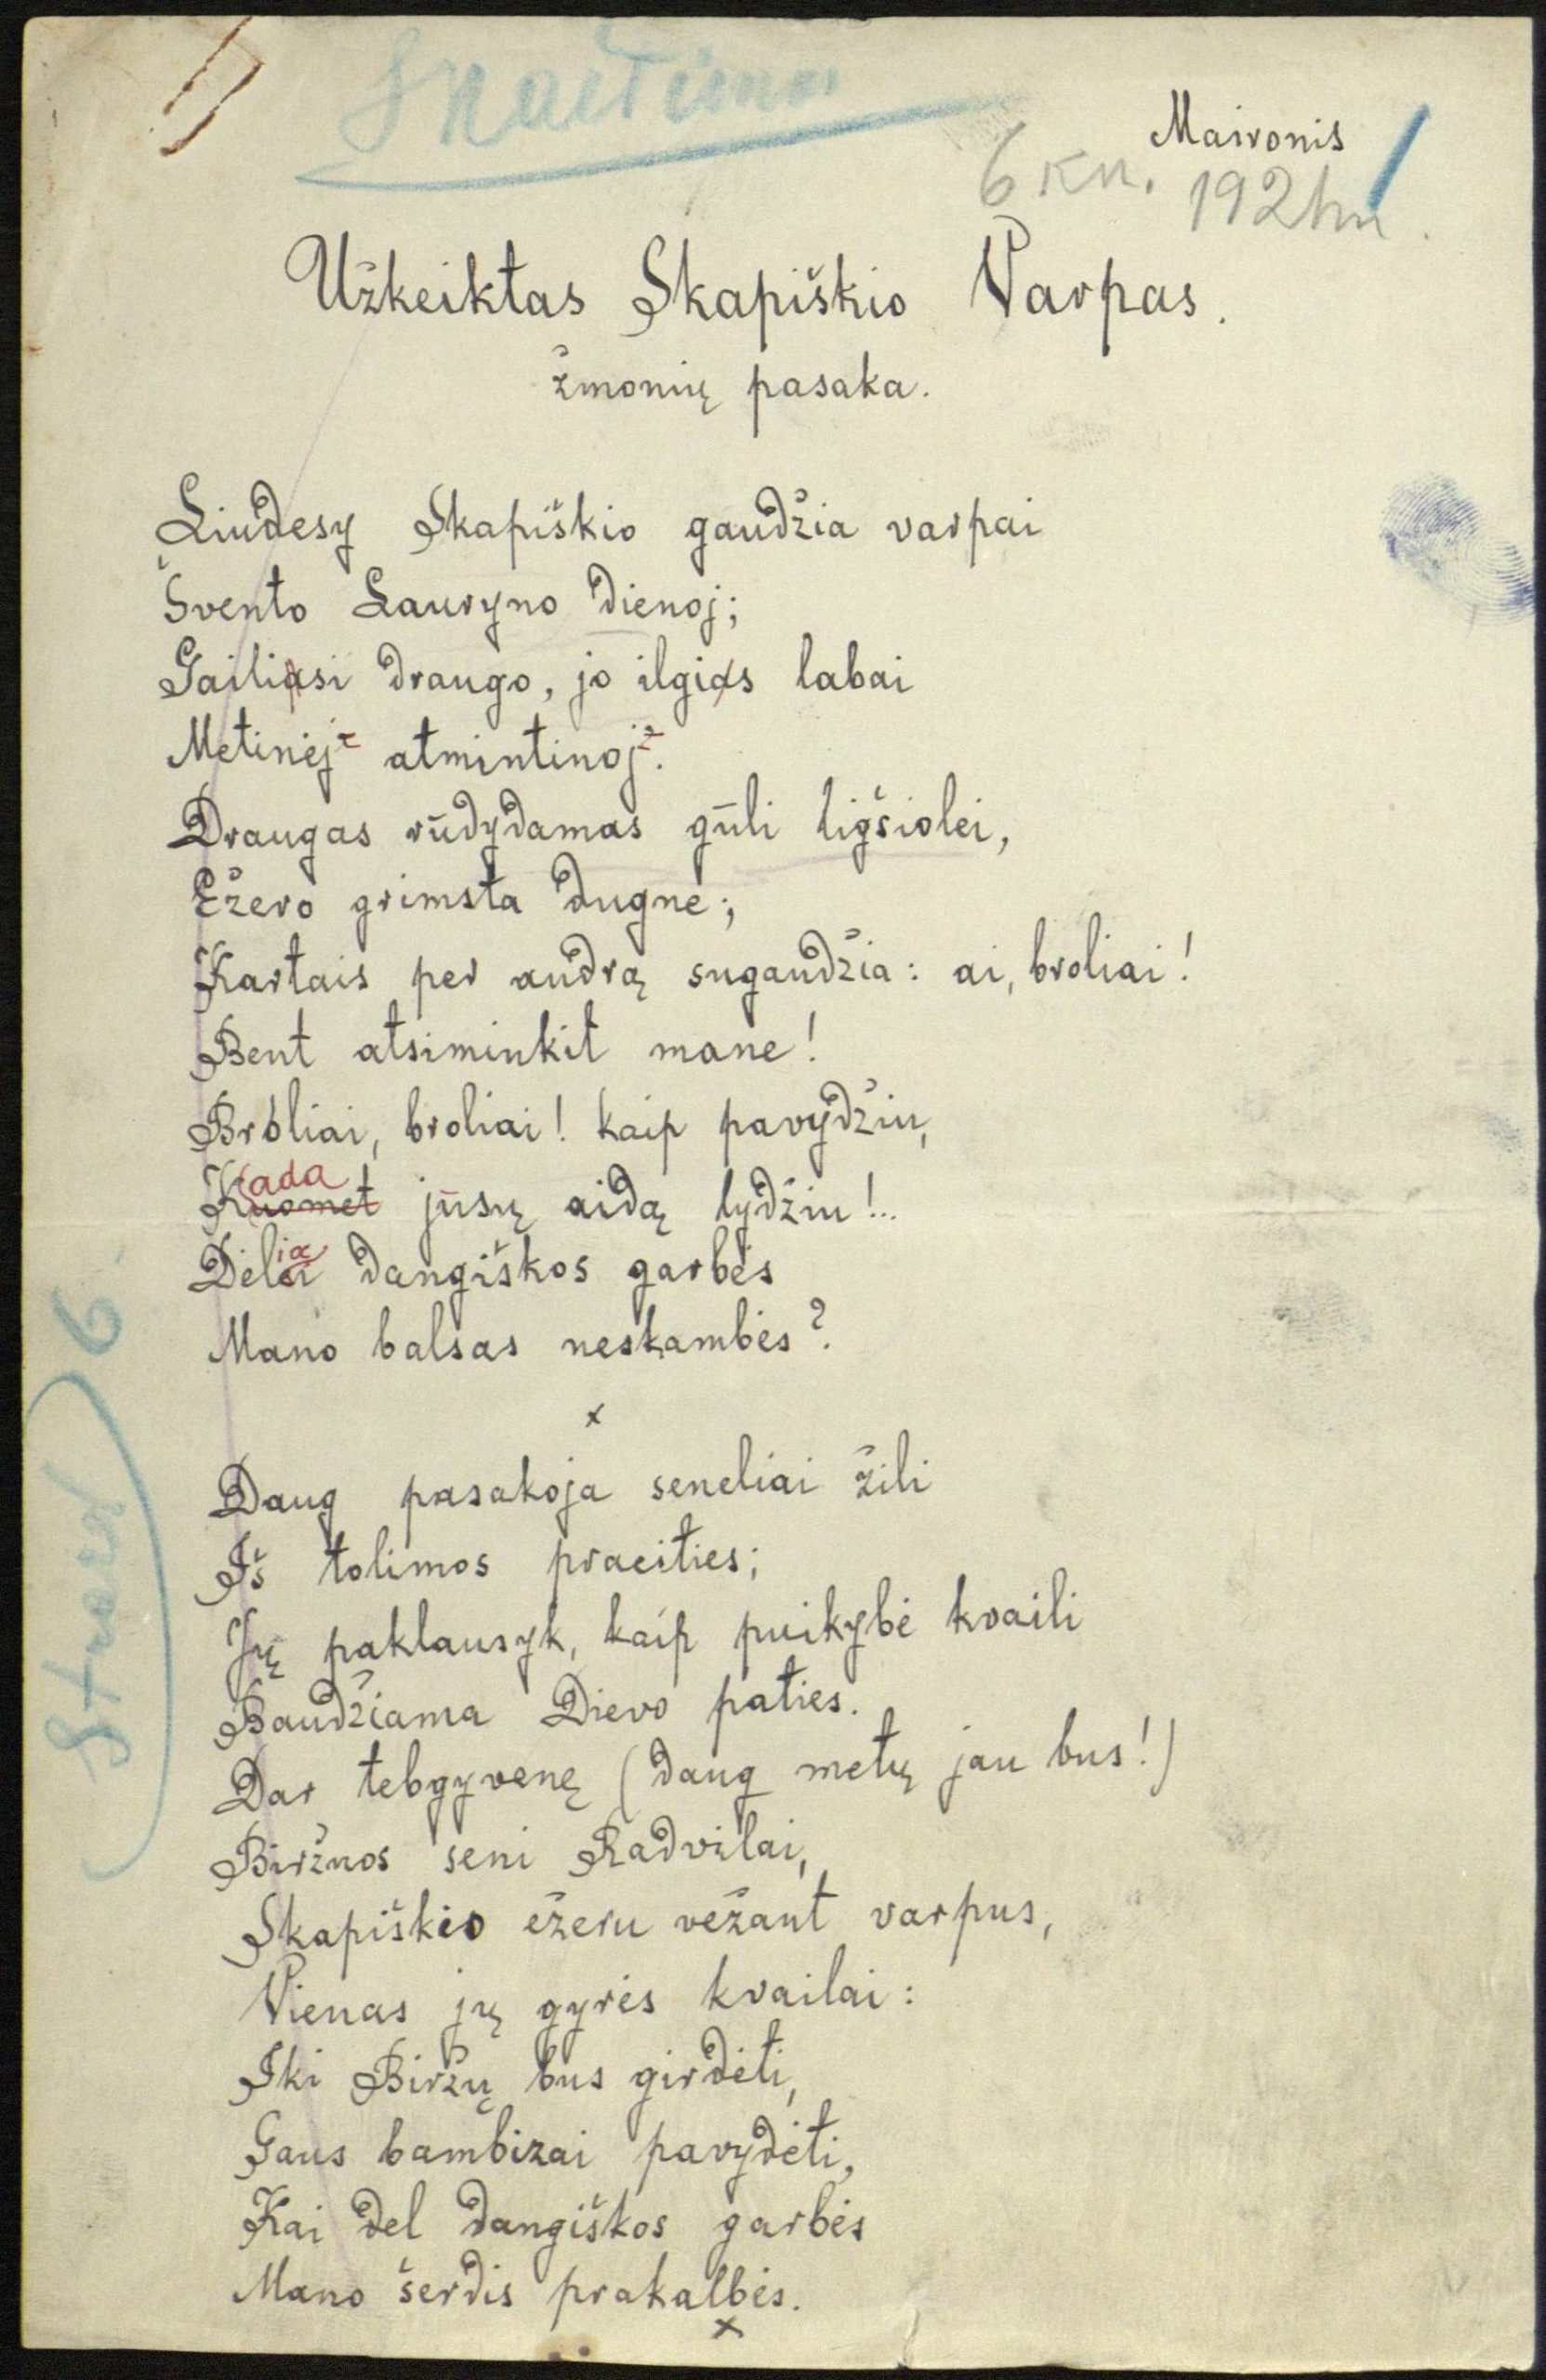 Skaitimas
Maironis
6 кл. 192 m.
Užkeiktas Skapiškio Varpas.
žmonių pasaka.
Liudesy Skapiškio gaudžia varpai
Švento Lauryno dienoj;
Gailiasi draugo, jo ilgias labai
Metinėj atmintinoj.
Draugas rūdydamas gūli ligšiolei,
Ežero grimsta dugne;
Kartais per audrą sugaudžia: ai, broliai!
Bent atsiminkit mane!
Broliai, broliai! kaip pavydžiu,
Kuomet ada jūsų aidą lydžiu!..
Dėlia dangiškos garbės
Mano balsas neskambės?
x
Daug pasakoja seneliai žili
Iš tolimos praeities;
Jų paklausyk, kaip puikybė kvaili
Baudžiama Dievo paties.
Dar tebgyvenę (daug metų jau bus!)
Biržuos seni Radvilai,
Skapiškio ežeru vežant varpus,
Vienas jų gyrės kvailai:
Iki Biržų bus girdėti,
Gaus bambizai pavydėti,
Kai del dangiškos garbės
Mano šerdis prakalbės.
x
6